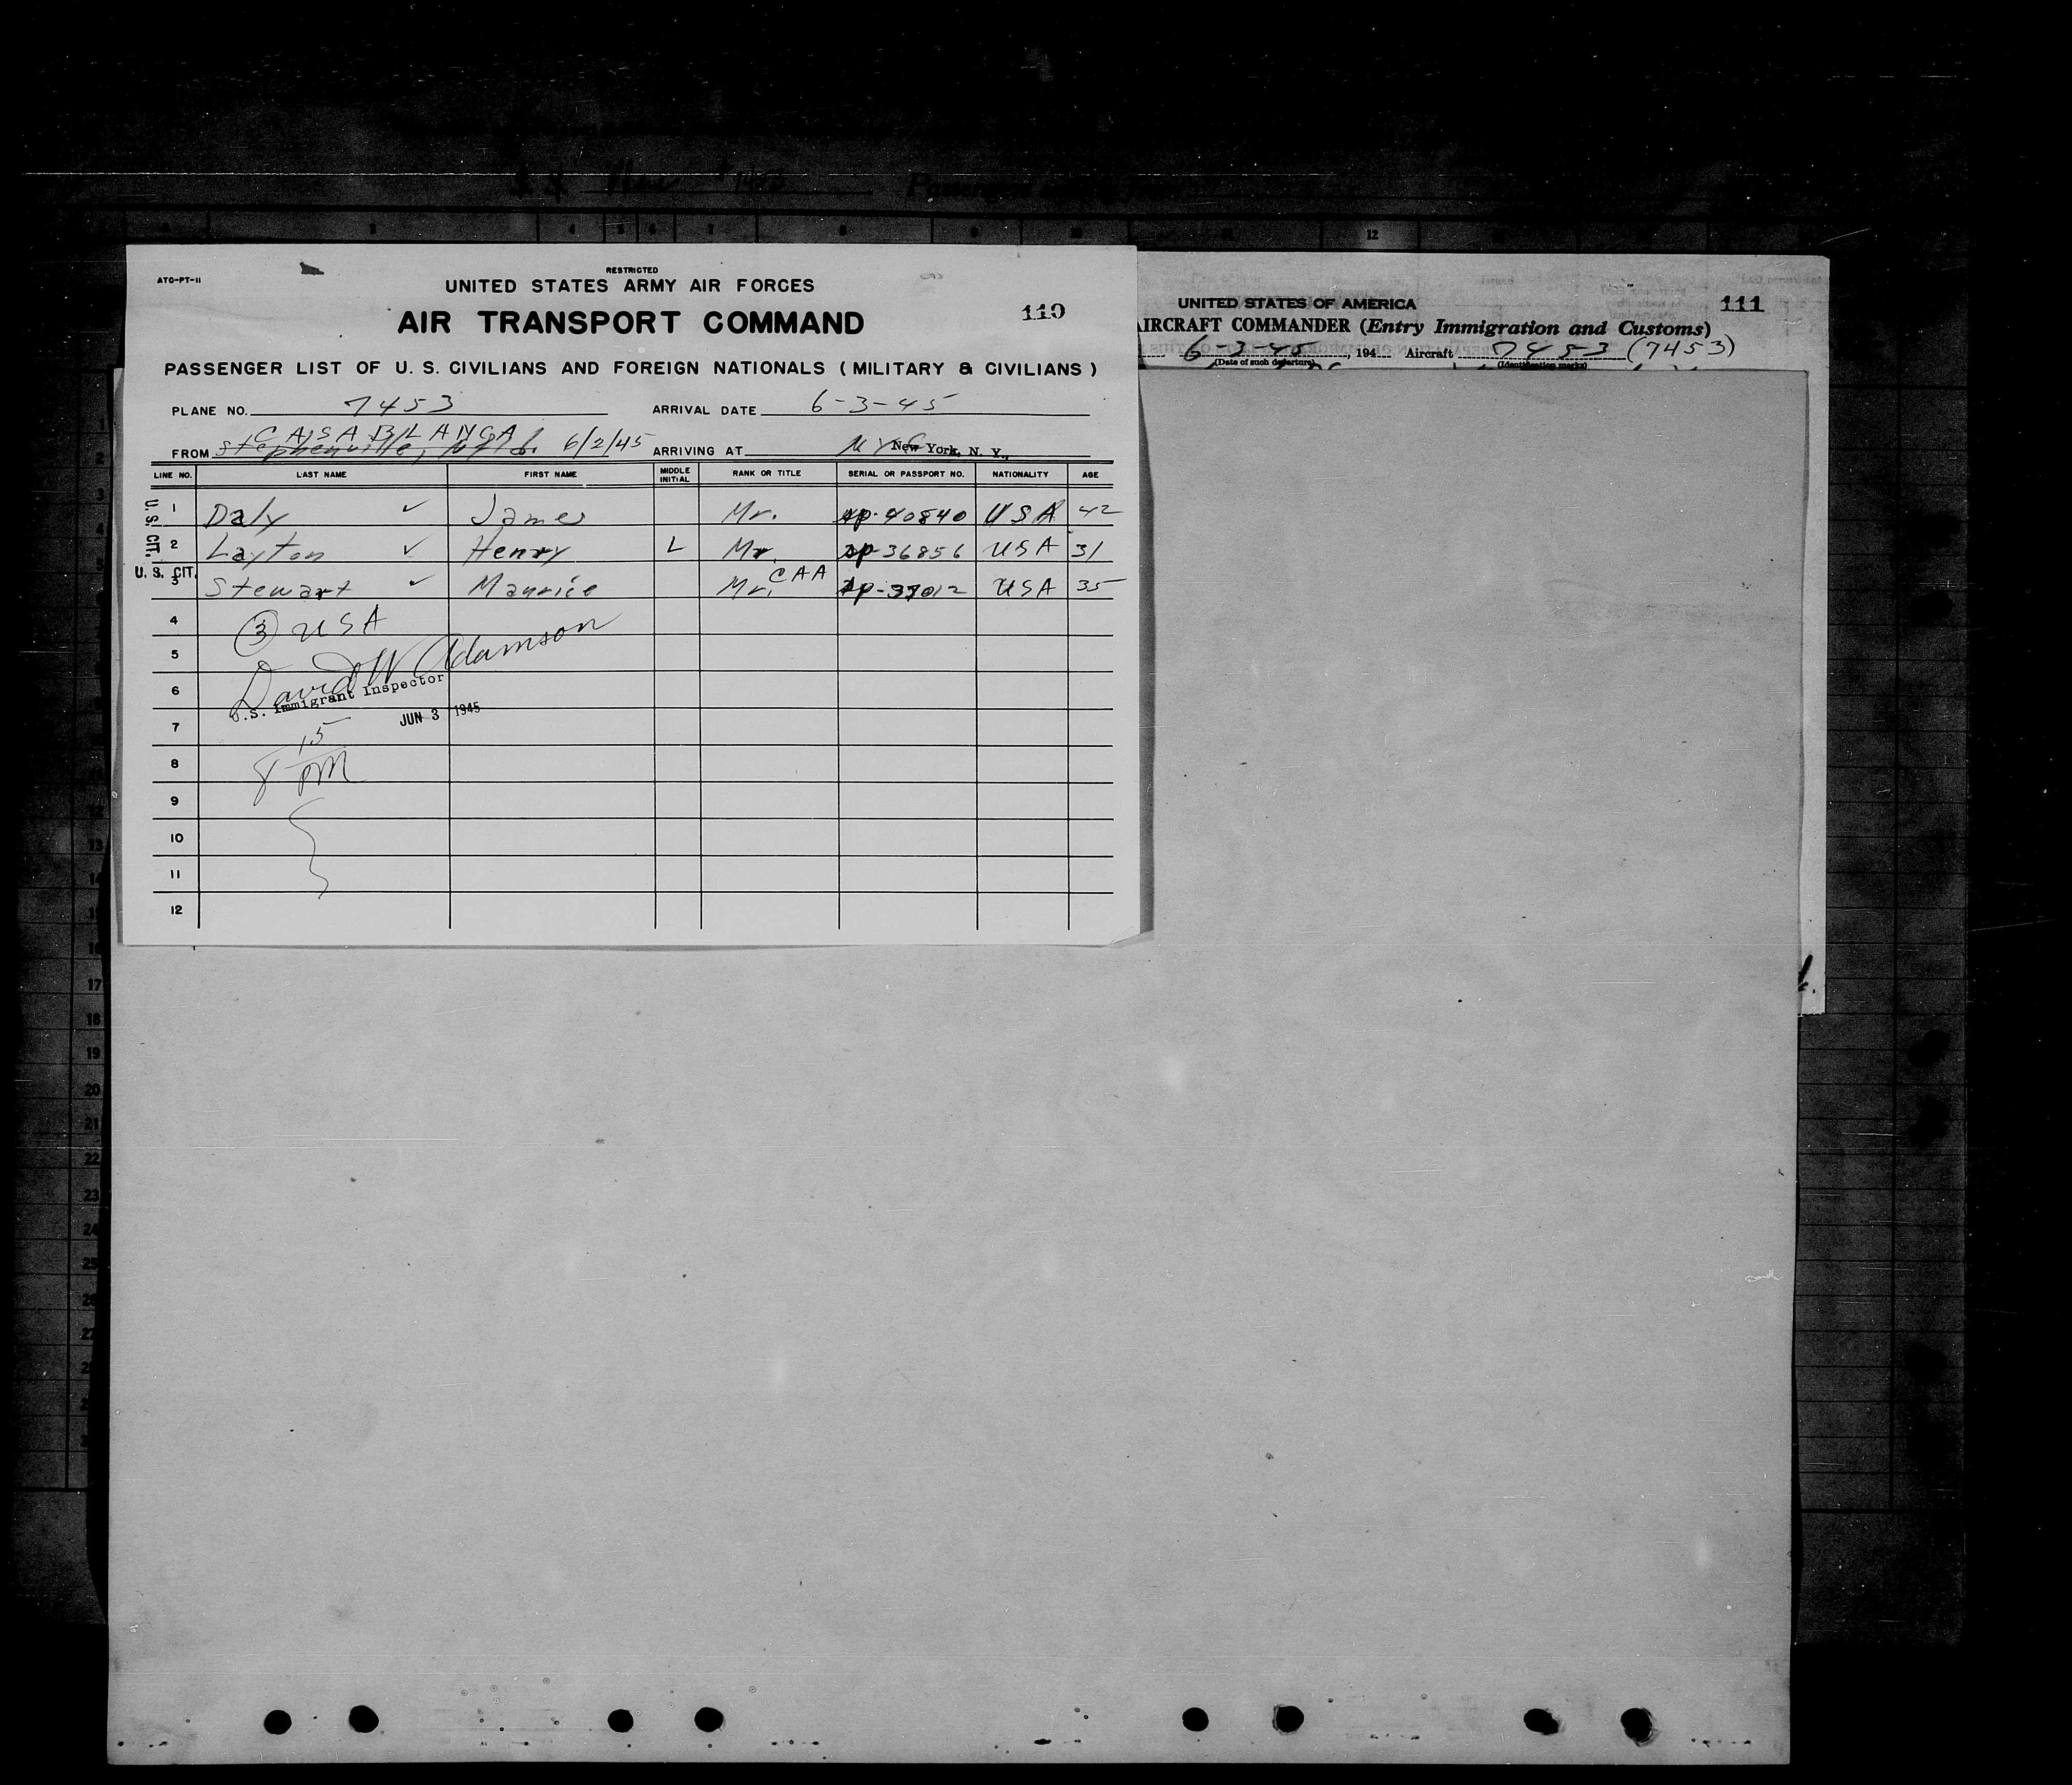 ATC-PT-11
RESTRICTED
UNITED STATES ARMY AIR FORCES
AIR TRANSPORT COMMAND
110
PASSENGER LIST OF U. S. CIVILIANS AND FOREIGN NATIONALS ( MILITARY & CIVILIANS )
PLANE NO. 7453 ARRIVAL DATE 6-3-45
CASABLANCA
FROM Stephenville, Nfld. 6/2/45 ARRIVING AT NYC New York, N. Y.,
LINE NO. LAST NAME FIRST NAME MIDDLE INITIAL RANK OR TITLE SERIAL OR PASSPORT NO. NATIONALITY AGE
U. S. CIT.
1 Daly ✓ James Mr. sp-40840 USA 42
2 Layton ✓ Henry L Mr. sp-36856 USA 31
U. S. CIT.
3 Stewart ✓ Maurice Mr. CAA sp-37012 USA 35
4 (3) USA
5
David W Adamson
6
U.S. Immigrant Inspector
7 JUN 3 1945
8 15 PM
8
9
10
11
12
UNITED STATES OF AMERICA
111
AIRCRAFT COMMANDER (Entry Immigration and Customs)
6-3-45, 194 Aircraft 7453 (7453)
(Date of such departure) (Identification marks)
12
1
2
3
4
13
14
16
17
18
19
20
21
22
23
24
25
26
27